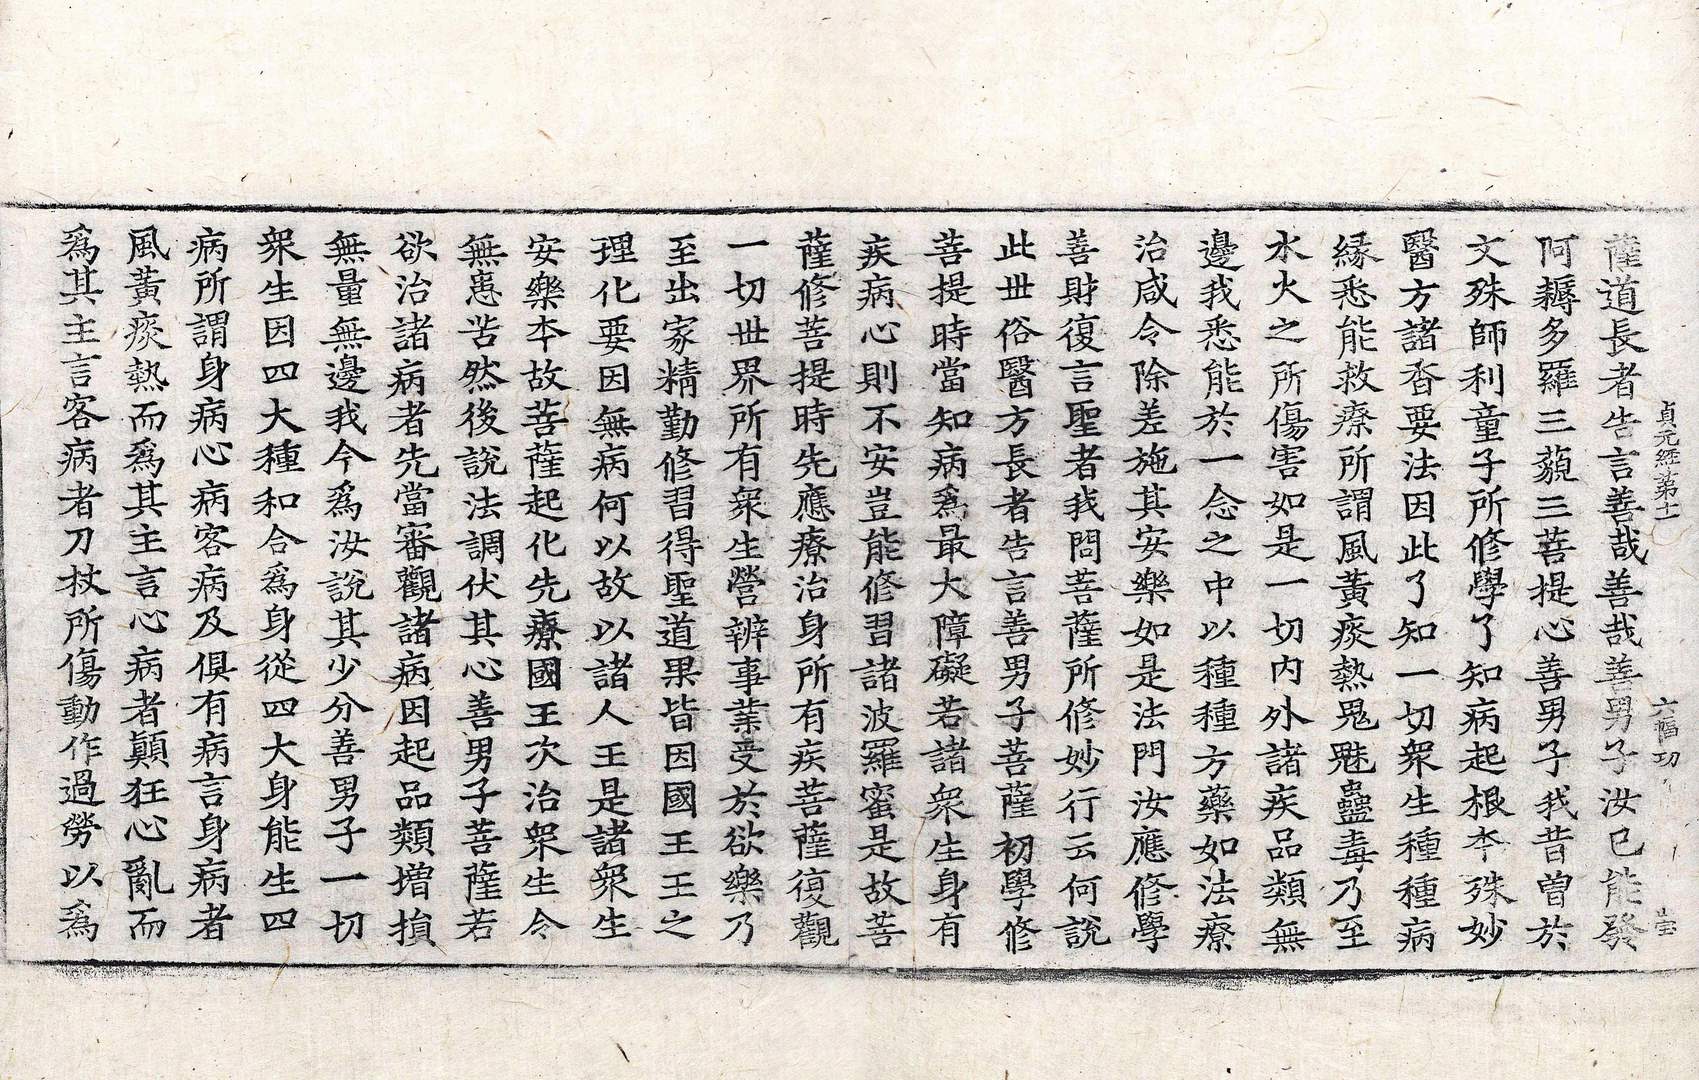 貞元經第十一 六幅 功
薩道長者告言善哉善哉善男子汝已能發
阿耨多羅三藐三菩提心善男子我昔曾於
文殊師利童子所修學了知病起根夲殊妙
醫方諸香要法因此了知一切衆生種種病
縁悉能救療所謂風黃痰熱鬼魅蠱毒乃至
水火之所傷害如是一切內外諸疾品類無
邊我悉能於一念之中以種種方藥如法療
治咸令除差施其安樂如是法門汝應修學
善財復言聖者我問菩薩所修妙行云何說
此世俗醫方長者告言善男子菩薩初學修
菩提時當知病爲最大障礙若諸衆生身有
疾病心則不安豈能修習諸波羅蜜是故菩
薩修菩提時先應療治身所有疾菩薩復觀
一切世界所有衆生營辨事業受於欲樂乃
至出家精勤修習得聖道果皆因國王王之
理化要因無病何以故以諸人王是諸衆生
安樂夲故菩薩起化先療國王次治衆生令
無患苦然後說法調伏其心善男子菩薩若
欲治諸病者先當審觀諸病因起品類增損
無量無邊我今爲汝說其少分善男子一切
衆生因四大種和合爲身從四大身能生四
病所謂身病心病客病及俱有病言身病者
風黃痰熱而爲其主言心病者顚狂心亂而
爲其主言客病者刀杖所傷動作過勞以爲